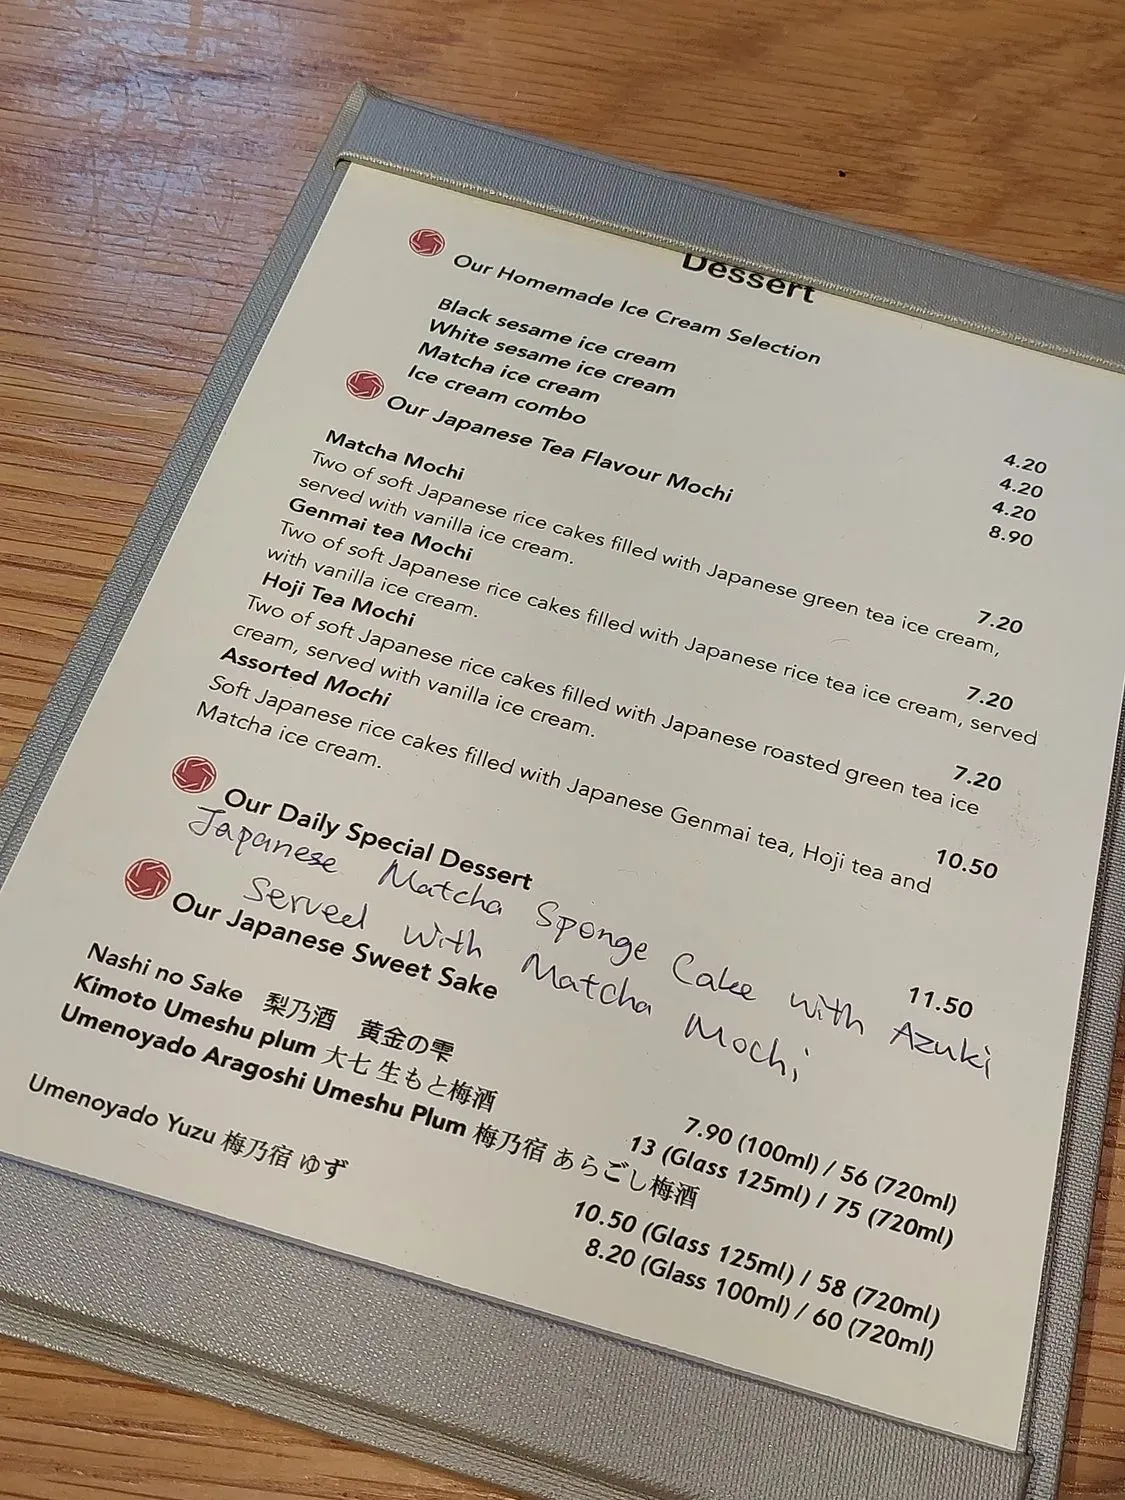 Dessert
Our Homemade Ice Cream Selection
Black sesame ice cream 4.20
White sesame ice cream 4.20
Matcha ice cream 4.20
Ice cream combo 8.90
Our Japanese Tea Flavour Mochi
Matcha Mochi 7.20
Two of soft Japanese rice cakes filled with Japanese green tea ice cream,
served with vanilla ice cream.
Genmai tea Mochi 7.20
Two of soft Japanese rice cakes filled with Japanese rice tea ice cream, served
with vanilla ice cream.
Hoji Tea Mochi 7.20
Two of soft Japanese rice cakes filled with Japanese roasted green tea ice
cream, served with vanilla ice cream.
Assorted Mochi 10.50
Soft Japanese rice cakes filled with Japanese Genmai tea, Hoji tea and
Matcha ice cream.
Our Daily Special Dessert 11.50
Japanese Matcha Sponge Cake with Azuki
Served with Matcha Mochi
Our Japanese Sweet Sake
Nashi no Sake 梨乃酒 黄金の雫 7.90 (100ml) / 56 (720ml)
Kimoto Umeshu plum 大七 生もと梅酒 13 (Glass 125ml) / 75 (720ml)
Umenoyado Aragoshi Umeshu Plum 梅乃宿 あらごし梅酒 10.50 (Glass 125ml) / 58 (720ml)
Umenoyado Yuzu 梅乃宿 ゆず 8.20 (Glass 100ml) / 60 (720ml)